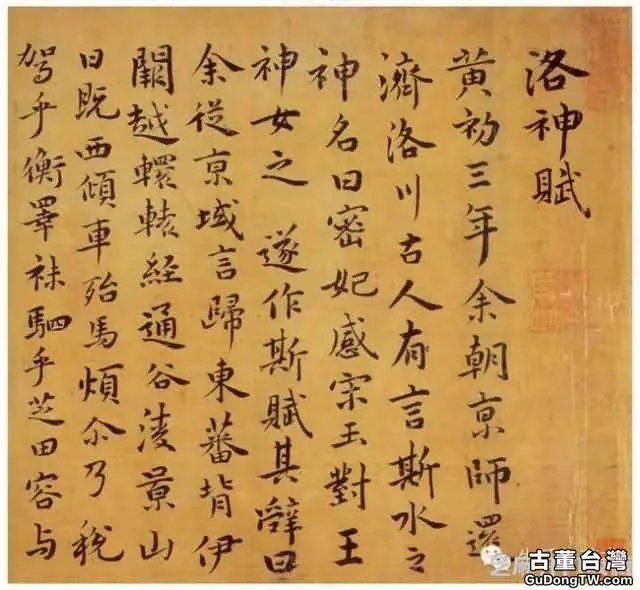 洛神賦
黄初三年余朝京師還
濟洛川古人有言斯水之
神名曰密妃感宋玉對王
神女之 遂作斯賦其辭曰
余従京域言歸東蕃背伊
闕越轘轅経通谷淩景山
日既西傾車殆馬煩尒乃税
駕乎衡睪秣駟乎芝田容与
古董台灣
GuDongTW.com